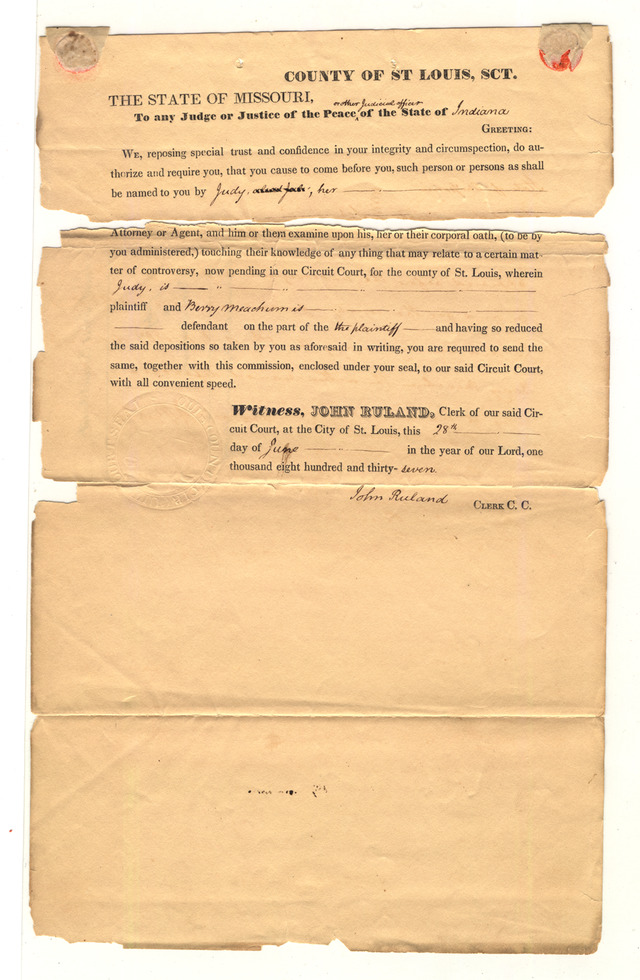 COUNTY OF ST LOUIS, SCT.
THE STATE OF MISSOURI,
or other Judicial officer
To any Judge or Justice of the Peace ^ of the State of Indiana
GREETING:
WE, reposing special trust and confidence in your integrity and circumspection, do au-
thorize and require you, that you cause to come before you, such person or persons as shall
be named to you by Judy, her
Attorney or Agent, and him or them examine upon his, her or their corporal oath, (to be by
you administered,) touching their knowledge of any thing that may relate to a certain mat-
ter of controversy, now pending in our Circuit Court, for the county of St. Louis, wherein
Judy, is — " — " —
plaintiff and Berry Meachum is —
— defendant on the part of the the plaintiff — and having so reduced
the said depositions so taken by you as aforesaid in writing, you are required to send the
same, together with this commission, enclosed under your seal, to our said Circuit Court,
with all convenient speed.
Witness, JOHN RULAND, Clerk of our said Cir-
cuit Court, at the City of St. Louis, this 28th —
day of June — in the year of our Lord, one
thousand eight hundred and thirty-seven.
John Ruland CLERK C. C.